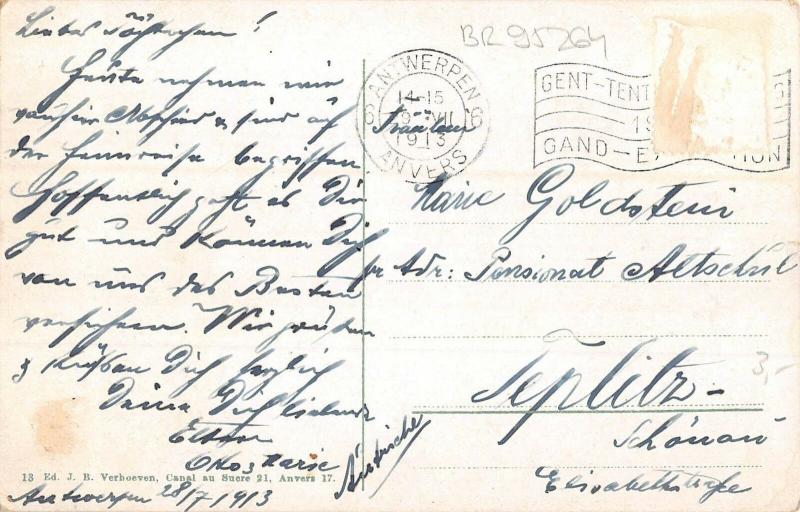 Liebes Töchterchen!
Heute nehmen wir
von hier Abschied & sind auf
der Heimreise begriffen.
Hoffentlich geht es Dir
gut und können Dich
von uns das Besten
versichern. Wir grüßen
& küßen Dich herzlich
Deine Dich liebende
Eltern
Otto & Marie
Antwerpen 28/7 1913
13 Ed. J. B. Verhoeven, Canal au Sucre 21, Anvers 17.
BR 95264
ANTWERPEN
14-15
6 6
VII
1913
ANVERS
GENT-TENT
GAND-E
Fräulein
Marie Goldstein
pr Adr: Pensionat Altschul
Teplitz-
Schönau
Elisabethstraße
3,-